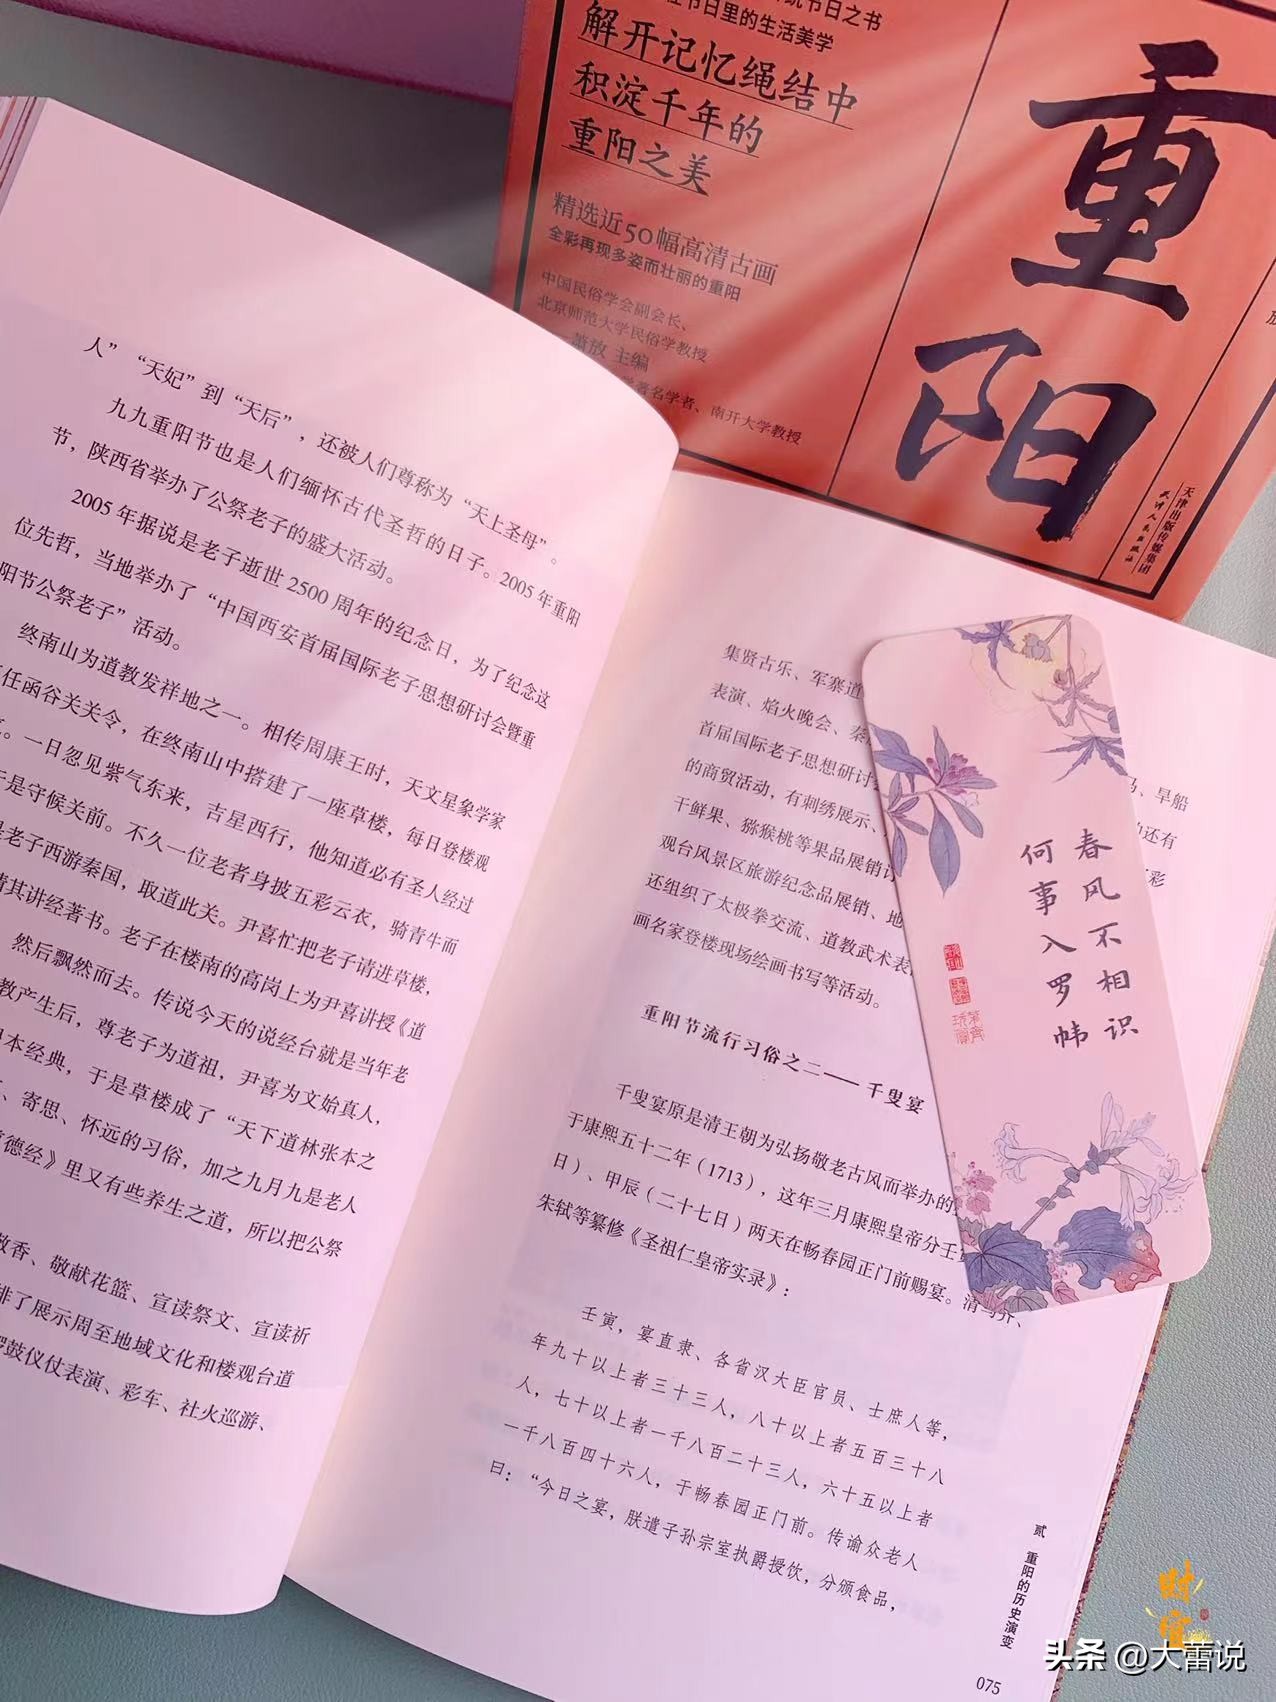 节日之书
节日里的生活美学
解开记忆绳结中
积淀千年的
重阳之美
精选近50幅高清古画
全彩再现多姿而壮丽的重阳
中国民俗学会副会长、
北京师范大学民俗学教授
萧放 主编
学著名学者、南开大学教授
重阳
天津出版传媒集团
天津人民出版社
人”“天妃”到“天后”，还被人们尊称为“天上圣母”。
九九重阳节也是人们缅怀古代圣哲的日子。2005年重阳
节，陕西省举办了公祭老子的盛大活动。
2005年据说是老子逝世2500周年的纪念日，为了纪念这
位先哲，当地举办了“中国西安首届国际老子思想研讨会暨重
阳节公祭老子”活动。
终南山为道教发祥地之一。相传周康王时，天文星象学家
任函谷关关令，在终南山中搭建了一座草楼，每日登楼观
。一日忽见紫气东来，吉星西行，他知道必有圣人经过
于是守候关前。不久一位老者身披五彩云衣，骑青牛而
是老子西游秦国，取道此关。尹喜忙把老子请进草楼，
请其讲经著书。老子在楼南的高岗上为尹喜讲授《道
然后飘然而去。传说今天的说经台就是当年老
教产生后，尊老子为道祖，尹喜为文始真人，
本经典，于是草楼成了“天下道林张本之
、寄思、怀远的习俗，加之九月九是老人
道德经》里又有些养生之道，所以把公祭
敬香、敬献花篮、宣读祭文、宣读祈
排了展示周至地域文化和楼观台道
锣鼓仪仗表演、彩车、社火巡游、
集贤古乐、军寨道
表演、焰火晚会、秦
马、旱船
首届国际老子思想研讨会
还有
的商贸活动，有刺绣展示、
彩
干鲜果、猕猴桃等果品展销
观台风景区旅游纪念品展销、地
还组织了太极拳交流、道教武术表
画名家登楼现场绘画书写等活动。
重阳节流行习俗之二——千叟宴
千叟宴原是清王朝为弘扬敬老古风而举办的
于康熙五十二年（1713），这年三月康熙皇帝分壬
日）、甲辰（二十七日）两天在畅春园正门前赐宴。清马齐、
朱轼等纂修《圣祖仁皇帝实录》：
壬寅，宴直隶、各省汉大臣官员、士庶人等，
年九十以上者三十三人，八十以上者五百三十八
人，七十以上者一千八百二十三人，六十五以上者
一千八百四十六人，于畅春园正门前。传谕众老人
曰：“今日之宴，朕遣子孙宗室执爵授饮，分颁食品，
贰 重阳的历史演变
075
春风不相识
何事入罗帏
头条 @大蕾说